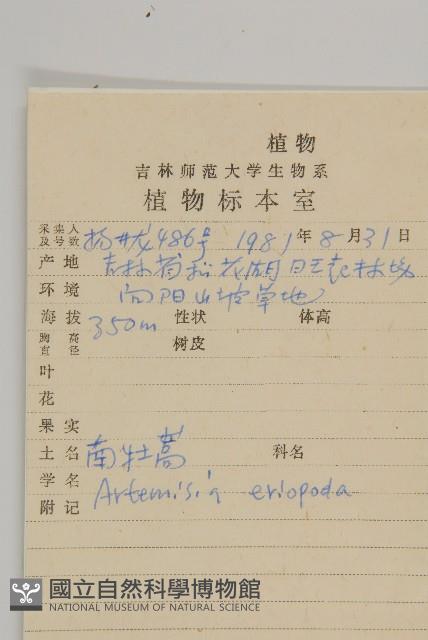 植物
吉林师范大学生物系
植物标本室
采集人及号数 杨 486号 1981年8月31日
产地 吉林省松花湖 林场
环境 向阳山坡草地
海拔 350m 性状 体高
胸高直径 树皮
叶
花
果实
土名 南牡蒿 科名
学名 Artemisia eriopoda
附记
國立自然科學博物館
NATIONAL MUSEUM OF NATURAL SCIENCE